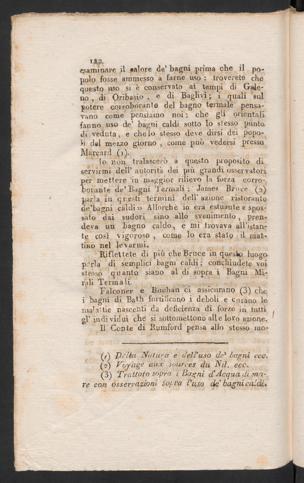 122
esaminare il calore de' bagni prima che il po-
polo fosse ammesso a farne uso: troverete che
questo uso si è conservato ai tempi di Gale-
no, di Oribasio, e di Baglivi; i quali sul
potere corroborante del bagno termale pensa-
vano come pensiamo noi; che gli orientali
fanno uso de' bagni caldi sotto lo stesso punto
di veduta, e che lo stesso deve dirsi dei popo-
li del mezzo giorno, come può vedersi presso
Marcard (1).
Io non tralascerò a questo proposito di
servirmi dell'autorità dei più grandi osservatori
per mettere in maggior rilievo la forza corro-
borante de' Bagni Termali; James Bruce (2)
parla in questi termini dell'azione ristorante
de' bagni caldi « Allorchè io era estenuato e spos-
sato dai sudori sino allo svenimento, pren-
deva un bagno caldo, e mi trovava all'istan-
te così vigoroso, come lo era stato il mat-
tino nel levarmi.
Riflettete di più che Bruce in questo luogo
parla di semplici bagni caldi; conchiudete voi
stesso quanto siano al di sopra i Bagni Mi-
rali Termali.
Falconer e Buchan ci assicurano (3) che
i bagni di Bath fortificano i deboli e curano le
malattie nascenti da deficienza di forze in tutti
gl' individui che si sottomettono alle loro azione.
Il Conte di Rumford pensa allo stesso mo-
(1) Della Natura e dell'uso de' bagni ecc.
(2) Voyage aux sources du Nil. ecc.
(3) Trattato sopra i Bagni d'Acqua di ma-
re con osservazioni sopra l'uso de' bagni caldi.